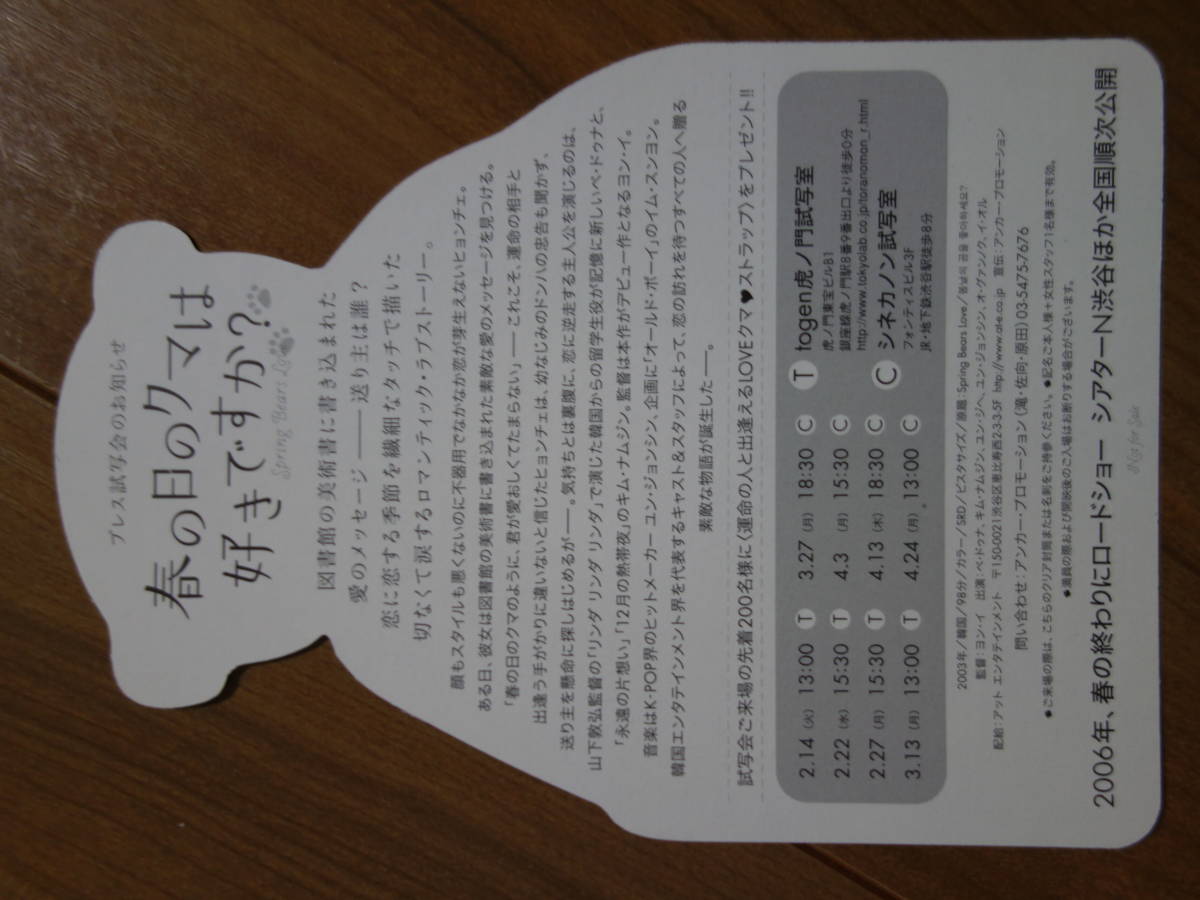 プレス試写会のお知らせ
春の日のクマは
好きですか?
Spring Bears Love
図書館の美術書に書き込まれた
愛のメッセージ――送り主は誰?
恋に恋する季節を繊細なタッチで描いた
切なくて涙するロマンティック・ラブストーリー。
顔もスタイルも悪くないのに不器用でなかなか恋が芽生えないヒョンチェ。
ある日、彼女は図書館の美術書に書き込まれた素敵な愛のメッセージを見つける。
「春の日のクマのように、君が愛おしくてたまらない」――これこそ、運命の相手と
出逢う手がかりに違いないと信じたヒョンチェは、幼なじみのドンハの忠告も聞かず、
送り主を懸命に探しはじめるが――。気持ちとは裏腹に、恋に逆走する主人公を演じるのは、
山下敦弘監督の「リンダ リンダ リンダ」で演じた韓国からの留学生役が記憶に新しいペ・ドゥナと、
「永遠の片想い」「12月の熱帯夜」のキム・ナムジン。監督は本作がデビュー作となるヨン・イ。
音楽はK-POP界のヒットメーカー ユン・ジョンシン、企画に「オールド・ボーイ」のイム・スンヨン。
韓国エンタテインメント界を代表するキャスト&スタッフによって、恋の訪れを待つすべての人へ贈る
素敵な物語が誕生した――。
試写会ご来場の先着200名様に〈運命の人と出逢えるLOVEクマ♥ストラップ〉をプレゼント!!
2.14(火) 13:00 T 3.27(月) 18:30 C
2.22(水) 15:30 T 4.3(月) 15:30 C
2.27(月) 15:30 T 4.13(木) 18:30 C
3.13(月) 13:00 T 4.24(月) 13:00 C
T togen虎ノ門試写室
虎ノ門東宝ビルB1
銀座線虎ノ門駅8番9番出口より徒歩0分
http://www.tokyolab.co.jp/toranomon_r.html
C シネカノン試写室
フォンティスビル3F
JR・地下鉄渋谷駅徒歩8分
2003年/韓国/98分/カラー/SRD/ビスタサイズ/原題:Spring Bears Love/봄날의 곰을 좋아하세요?
監督:ヨン・イ 出演:ペ・ドゥナ、キム・ナムジン、ユン・ジヘ、ユン・ジョンシン、オ・グァンノク、イ・オル
配給:アット エンタテインメント 〒150-0021渋谷区恵比寿西2-3-3-5F http://www.at-e.co.jp 宣伝:アンカー・プロモーション
問い合わせ:アンカー・プロモーション(滝・佐向・原田)03-5475-7676
●ご来場の際は、こちらのクリア封筒または名刺をご持参ください。●記名ご本人様+女性スタッフ1名様まで有効。
●満員の際および開映後のご入場はお断りする場合がございます。
2006年、春の終わりにロードショー シアターN渋谷ほか全国順次公開
Not for Sale